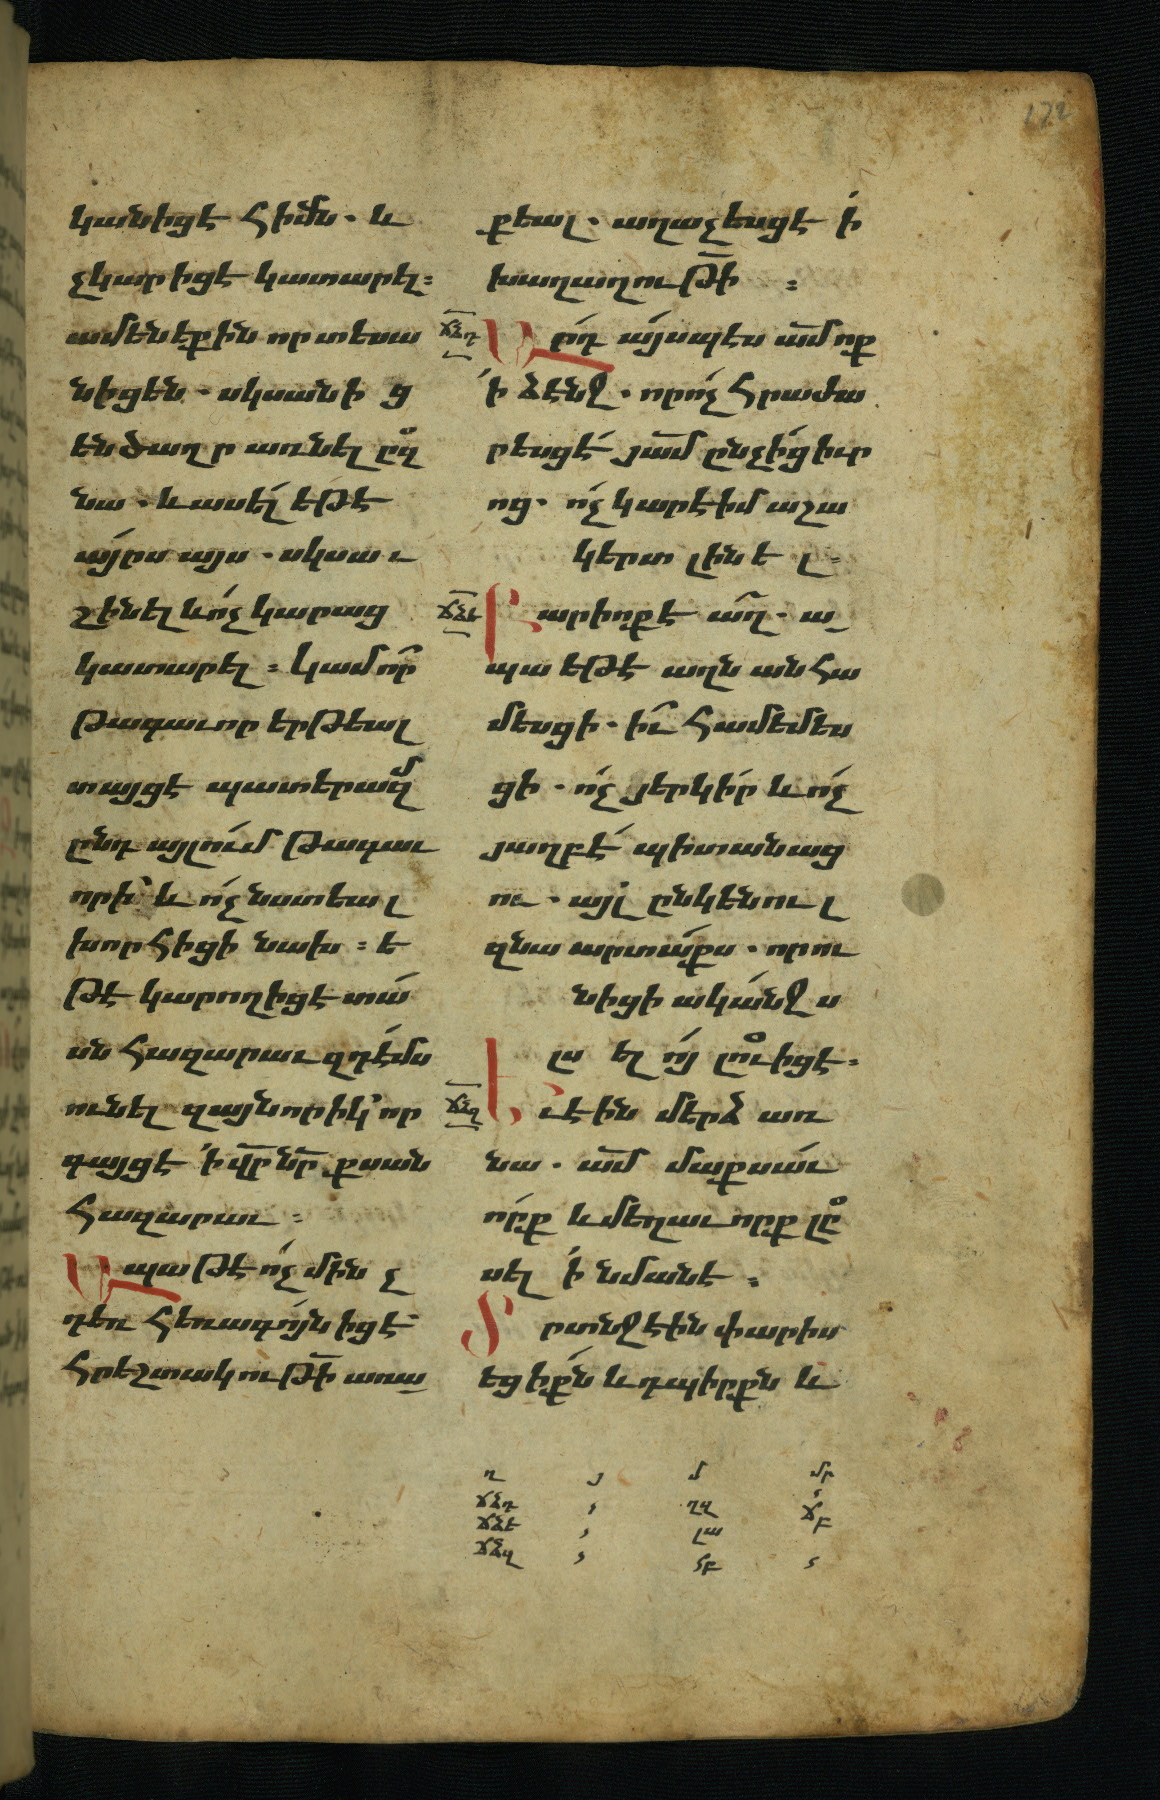 122
կանիցէ հիմն . և
չկարիցէ կատարել :
ամենեքին որ տեսա
նիցեն . սկսանի ց
են ծաղր առնել ըզ
նա . և ասել եթէ
այրս այս . սկսաւ
շինել և ոչ կարաց
կատարել : կամ որ
թագաւոր երթեալ
տայցէ պատերազմ
ընդ այլում թագաւ
որի՝ և ոչ նստեալ
խորհիցի նախ : ե
թէ կարողիցէ տա
սն հազարաւ զդէմս
ունել զայնորիկ՝ որ
գայցէ ՛ի վր նր քսան
հազարաւ :
Ապա թէ ոչ մինչ
դեռ հեռագոյն իցէ՝
հրեշտակութի առա
քեալ . աղաչեսցէ ի
խաղաղութի :
ՃՁԴ
Արդ այսպէս ամ ոք
՛ի ձէնջ . որ ոչ հրաժա
րեսցէ յամ ընչից իւր
ոց . ոչ կարէ իմ աշա
կերտ լինել :
ՃՁԵ
Բարիոք է աղ . ա
պա եթէ աղն անհա
մեսցի . իւ համեմես
ցի . ոչ յերկիր և ոչ
յաղբ է պիտանաց
ու . այլ ընկենուլ
զնա արտաքս . որ ու
նիցի ականջս
լսել ոյ լուիցէ :
ՃՁԶ
Եւ էին մերձ առ
նա . ամ մաքսաւ
որք և մեղաւորք լը
սել ՛ի նմանէ :
Տրտնջէին փարիս
եցիքն և դպիրքն և
ղ յ մ մր
ՃՁԴ
ՃՁԵ
ՃՁԶ